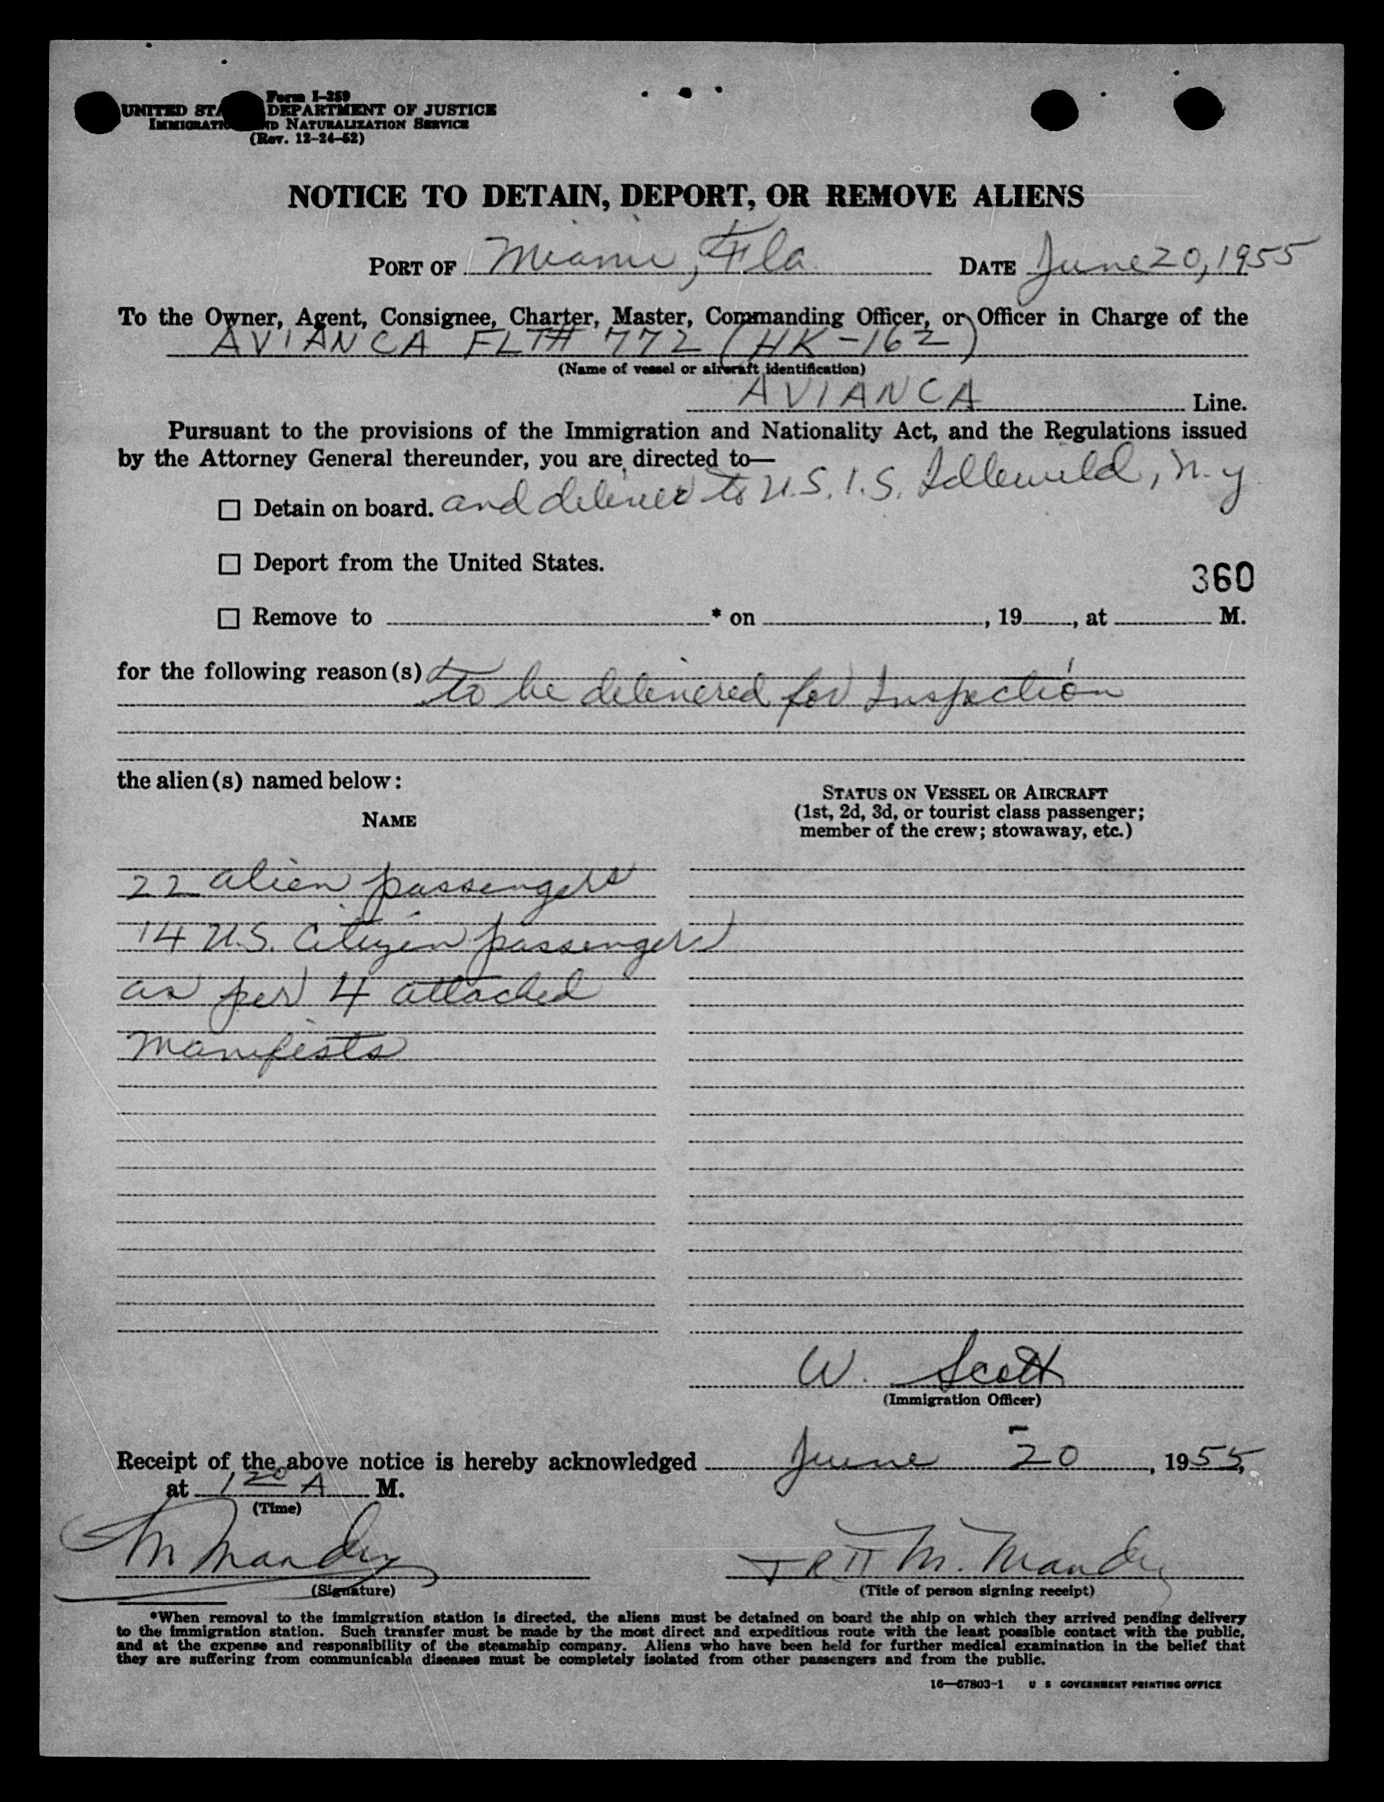 Form I-259
UNITED STA DEPARTMENT OF JUSTICE
IMMIGRATI ND NATURALIZATION SERVICE
(Rev. 12-24-52)
NOTICE TO DETAIN, DEPORT, OR REMOVE ALIENS
PORT OF Miami, Fla. DATE June 20, 1955
To the Owner, Agent, Consignee, Charter, Master, Commanding Officer, or Officer in Charge of the
AVIANCA FLT# 772 (HK-162)
(Name of vessel or aircraft identification)
AVIANCA Line.
Pursuant to the provisions of the Immigration and Nationality Act, and the Regulations issued
by the Attorney General thereunder, you are directed to—
☐ Detain on board. and deliver to U.S.I.S. Idlewild, N.Y
☐ Deport from the United States.
360
☐ Remove to * on , 19 , at M.
for the following reason(s) to be delivered for Inspection
the alien(s) named below:
NAME
STATUS ON VESSEL OR AIRCRAFT
(1st, 2d, 3d, or tourist class passenger;
member of the crew; stowaway, etc.)
22 alien passengers
14 U.S. Citizen passengers
as per 4 attached
manifests
W. Scott
(Immigration Officer)
Receipt of the above notice is hereby acknowledged June 20, 1955,
at 1 20 A M.
(Time)
M Mandry M. Mandry
(Signature) (Title of person signing receipt)
*When removal to the immigration station is directed, the aliens must be detained on board the ship on which they arrived pending delivery
to the immigration station. Such transfer must be made by the most direct and expeditious route with the least possible contact with the public,
and at the expense and responsibility of the steamship company. Aliens who have been held for further medical examination in the belief that
they are suffering from communicable diseases must be completely isolated from other passengers and from the public.
16—67803-1 U S GOVERNMENT PRINTING OFFICE